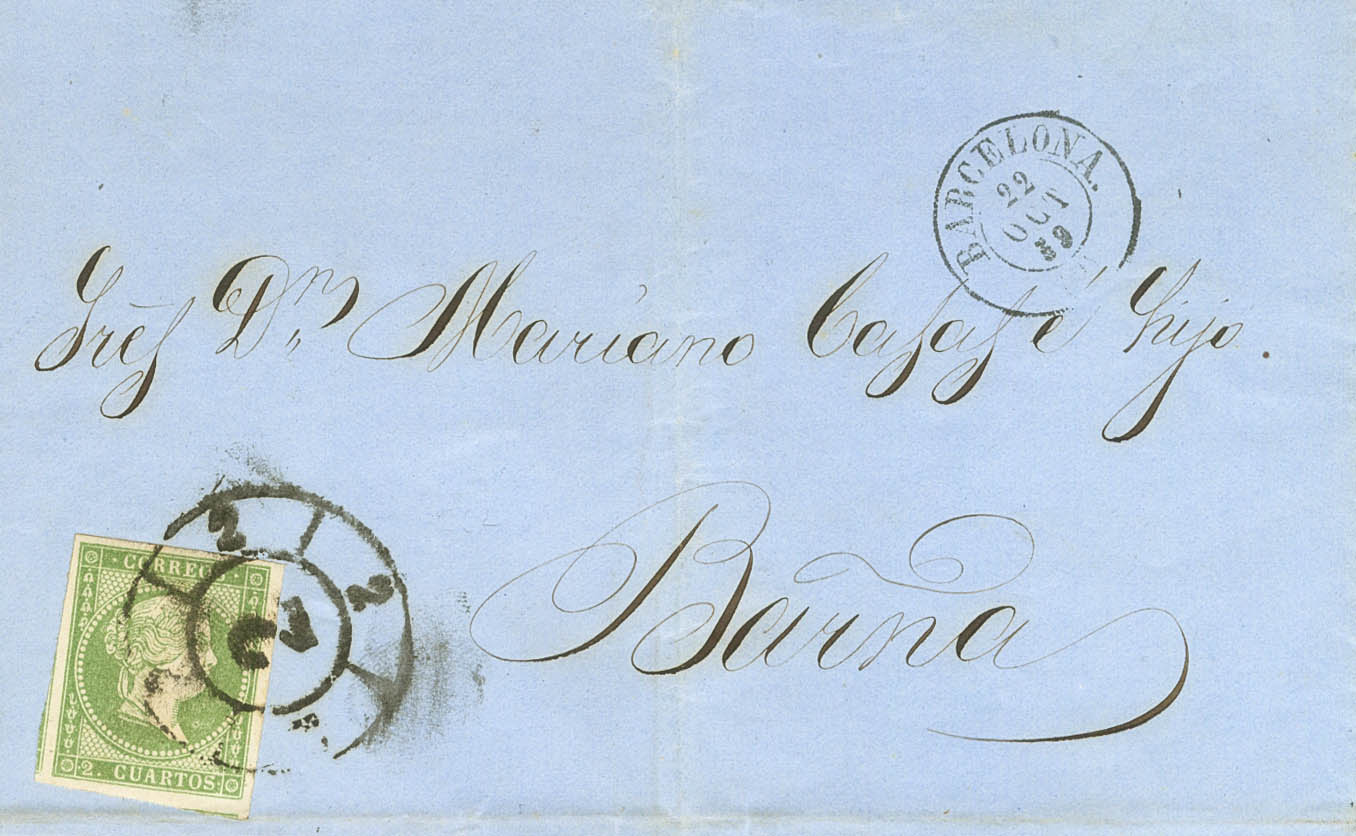 BARCELONA.
22
Sres Dn. Mariano Casas é hijo.
Barña
CORREOS
2. CUARTOS.
2
2